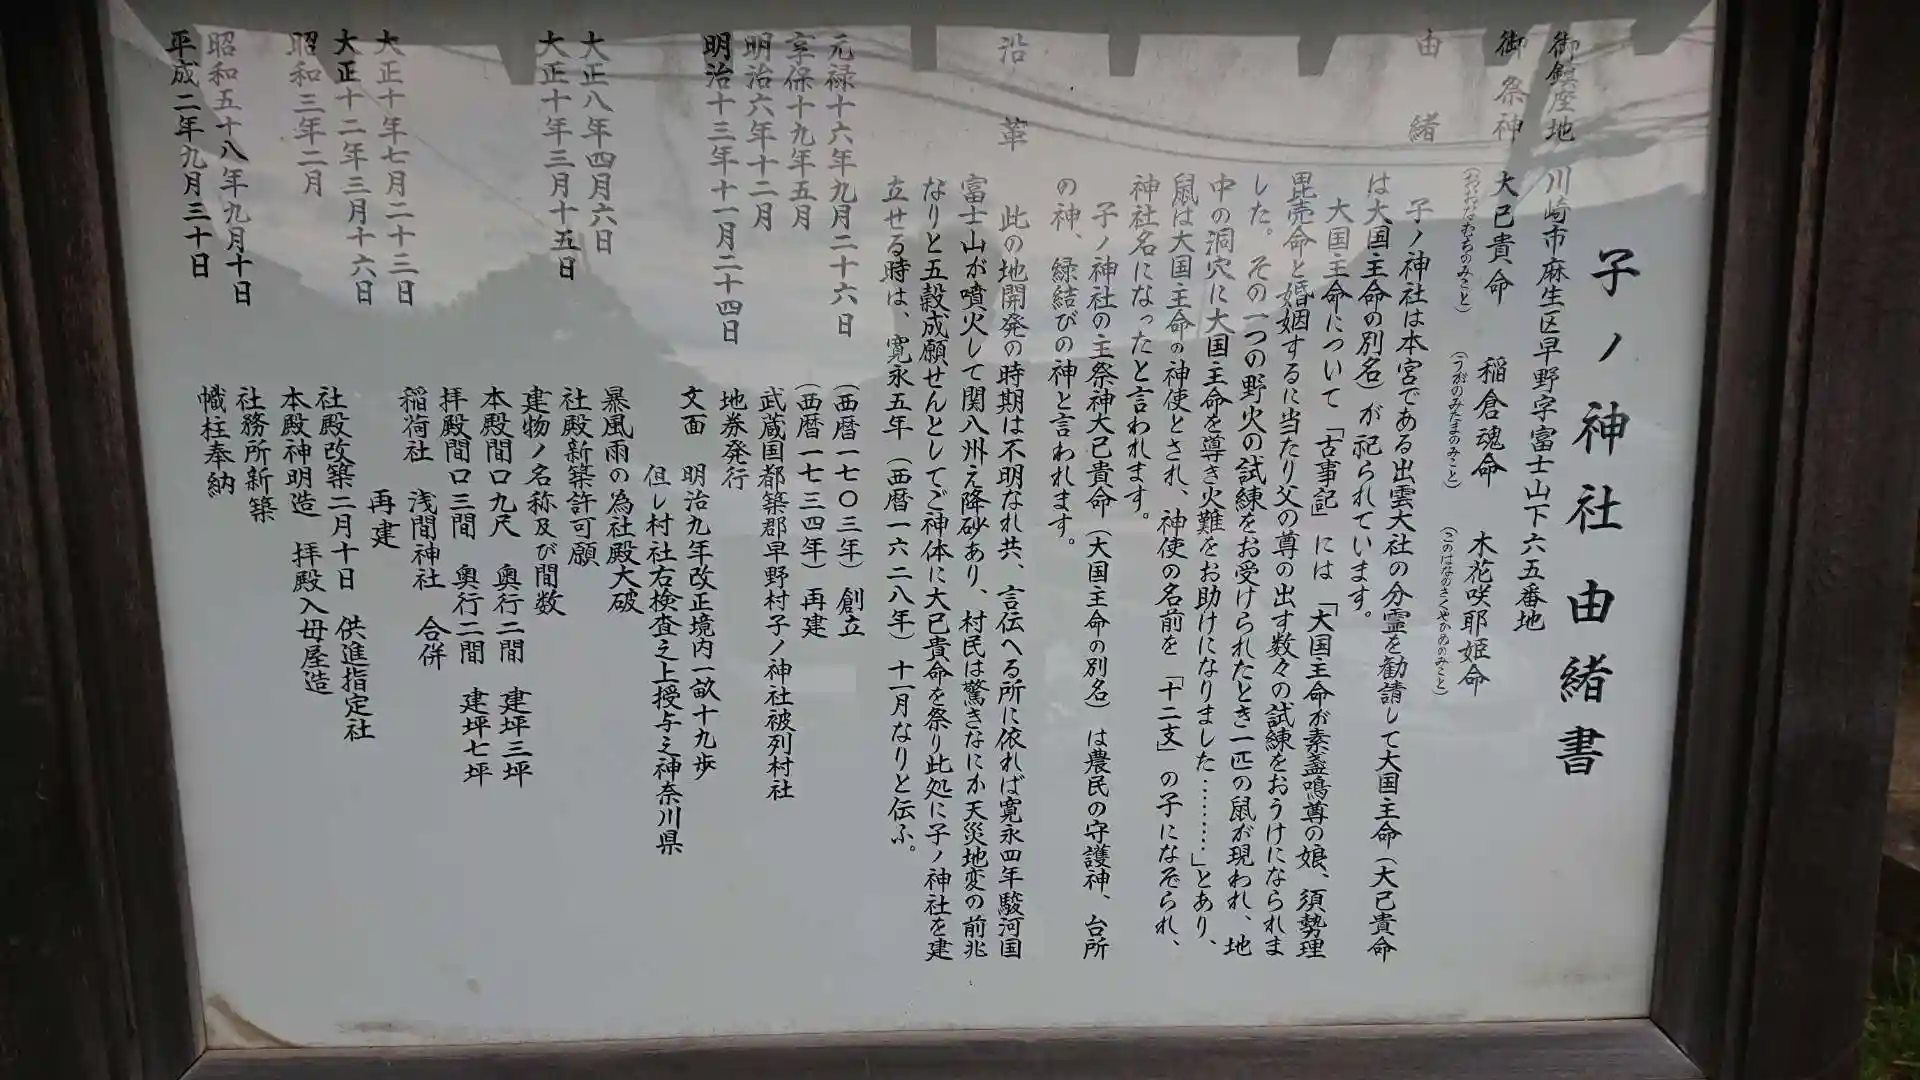 子ノ神社由緒書
御鎮座地 川崎市麻生区早野字富士山下六五番地
御祭神 大已貴命 稲倉魂命 木花咲耶姫命
(おおおなむちのみこと) (うがのみたまのみこと) (このはなのさくやひめのみこと)
由緒 子ノ神社は本宮である出雲大社の分霊を勧請して大国主命(大己貴命
は大国主命の別名)が祀られています。
大国主命について「古事記」には「大国主命が素盞鳴尊の娘、須勢理
毘売命と婚姻するに当たり父の尊の出す数々の試練をおうけになられま
した。その一つの野火の試練をお受けられたとき一匹の鼠が現われ、地
中の洞穴に大国主命を導き火難をお助けになりました………」とあり、
鼠は大国主命の神使とされ、神使の名前を「十二支」の子になぞられ、
神社名になったと言われます。
子ノ神社の主祭神大已貴命(大国主命の別名)は農民の守護神、台所
の神、縁結びの神と言われます。
沿革 此の地開発の時期は不明なれ共、言伝へる所に依れば寛永四年駿河国
富士山が噴火して関八州え降砂あり、村民は驚きなにか天災地変の前兆
なりと五穀成願せんとしてご神体に大已貴命を祭り此処に子ノ神社を建
立せる時は、寛永五年(西暦一六二八年)十一月なりと伝ふ。
元禄十六年九月二十六日 (西暦一七〇三年)創立
享保十九年五月 (西暦一七三四年)再建
明治六年十二月 武蔵国都築郡早野村子ノ神社被列村社
明治十三年十一月二十四日 地券発行
文面 明治九年改正境内一畝十九歩
但し村社右検査之上授与之神奈川県
大正八年四月六日 暴風雨の為社殿大破
大正十年三月十五日 社殿新築許可願
建物ノ名称及び間数
本殿間口九尺 奥行二間 建坪三坪
拝殿間口三間 奥行二間 建坪七坪
大正十年七月二十三日 稲荷社 浅間神社 合併
大正十二年三月十六日 再建
昭和三年二月 社殿改築二月十日 供進指定社
本殿神明造 拝殿入母屋造
昭和五十八年九月十日 社務所新築
平成二年九月三十日 幟柱奉納